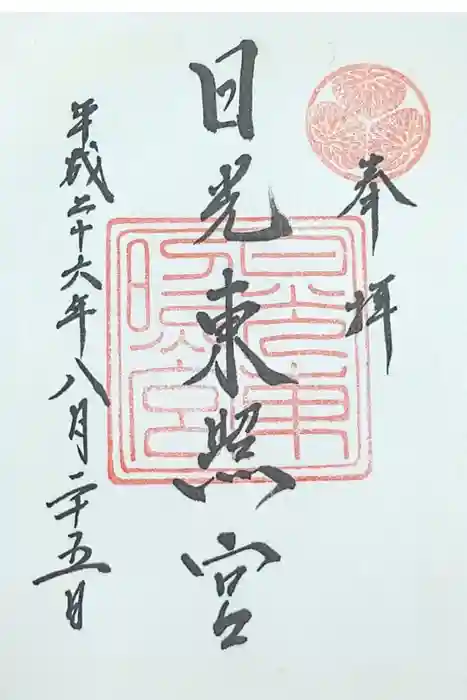 奉拝
日光東照宮
平成二十六年八月二十五日
日光東照宮